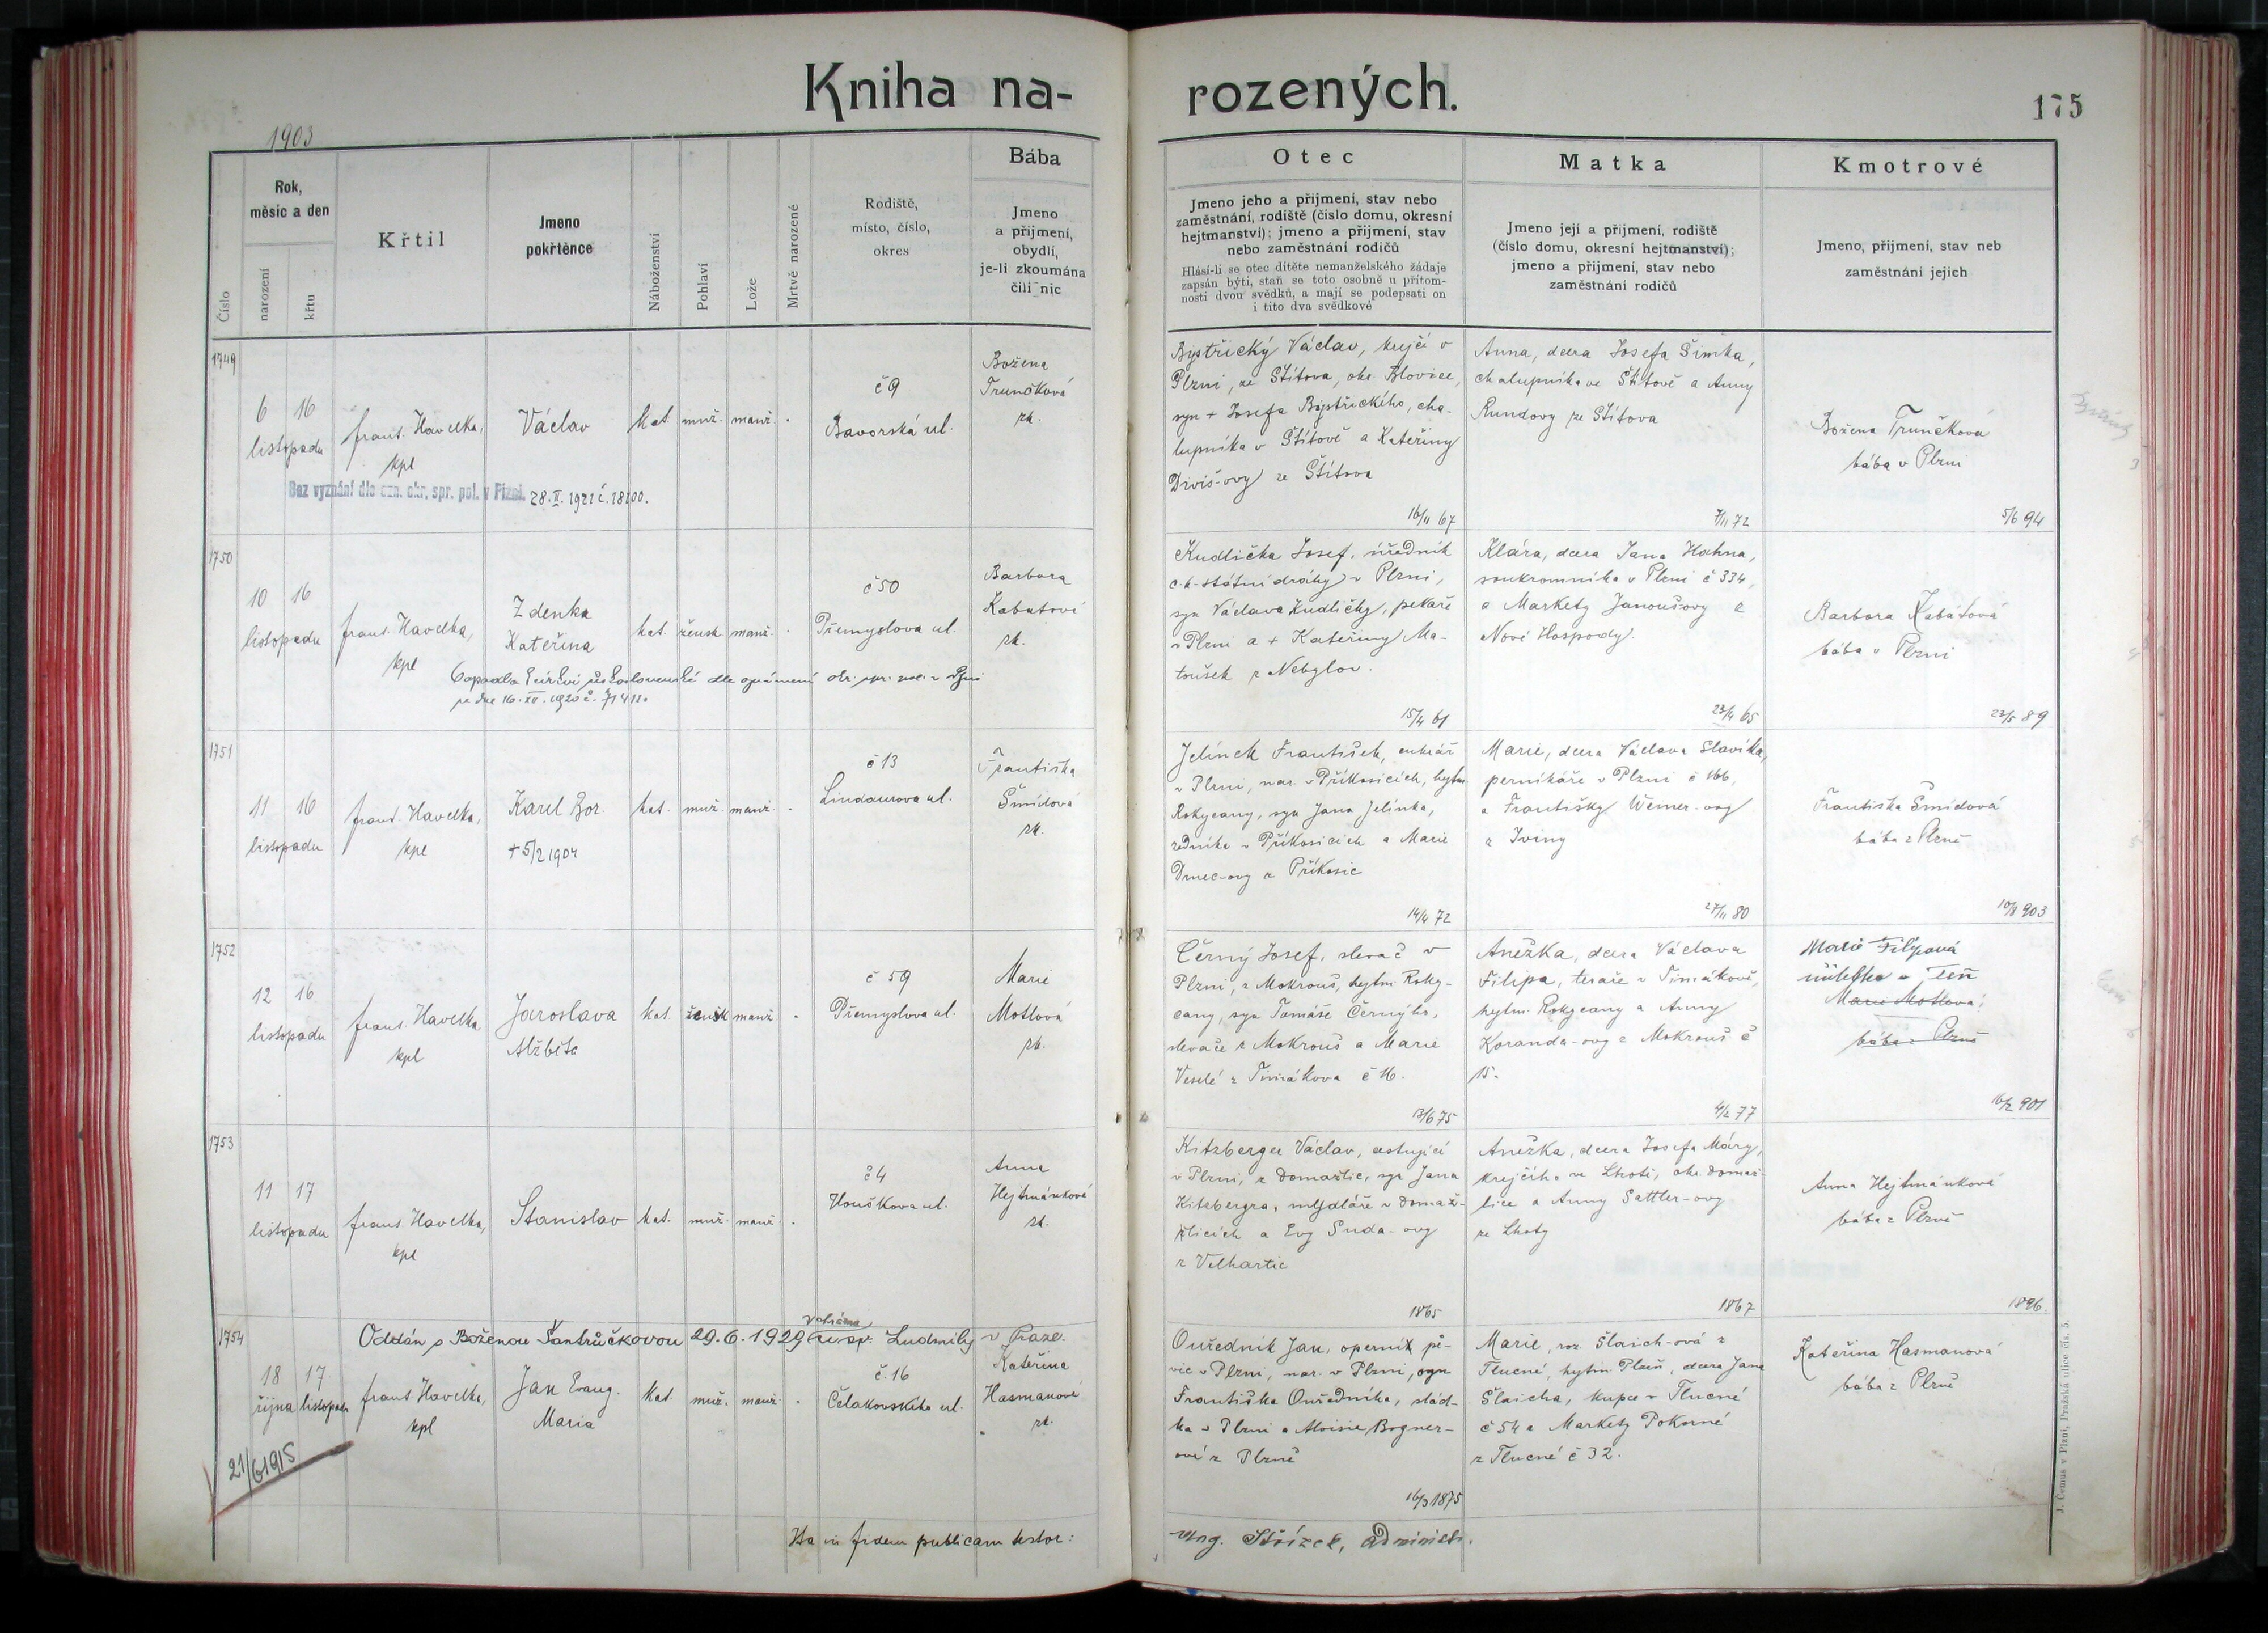 Kniha na-
rozených.
175
1903
Číslo
Rok,
měsíc a den
narození
křtu
Křtil
Jmeno
pokřtěnce
Náboženství
Pohlaví
Lože
Mrtvě narozené
Rodiště,
místo, číslo,
okres
Bába
Jmeno
a přijmení,
obydlí,
je-li zkoumána
čili nic
Otec
Jmeno jeho a přijmení, stav nebo
zaměstnání, rodiště (číslo domu, okresní
hejtmanství); jmeno a přijmení, stav
nebo zaměstnání rodičů
Hlásí-li se otec dítěte nemanželského žádaje
zapsán býti, staň se toto osobně u přítom-
nosti dvou svědků, a mají se podepsati on
i tito dva svědkové
Matka
Jmeno její a přijmení, rodiště
(číslo domu, okresní hejtmanství);
jmeno a přijmení, stav nebo
zaměstnání rodičů
Kmotrové
Jmeno, přijmení, stav neb
zaměstnání jejich
1749
6 16
listopadu
frant. Havelka,
kpl
Václav
kat. muž. manž.
č 9
Bavorská ul.
Božena
Trunčková
zk.
Bez vyznání dle ozn. okr. spr. pol. v Plzni. 28.II.1921 č. 18100.
Bystřický Václav, krejčí v
Plzni, ze Štítova, okr. Blovice,
syn + Josefa Bystřického, cha-
lupníka v Štítově a Kateřiny
Diviš-ovy ze Štítova
16/11 67
Anna, dcera Josefa Šimka,
chalupníka ve Štítově a Anny
Rundovy ze Štítova
7/11 72
Božena Trunčková
bába v Plzni
5/6 94
1750
10 16
listopadu
frant. Havelka,
kpl
Zdenka
Kateřina
kat. žensk. manž.
č 50
Přemyslova ul.
Barbora
Kabátová
zk.
církvi československé dle oznámení okr. spr. pol. v Plzni
ze dne 16.XII.1920 č. 71411.
Kudlička Josef, úředník
c.k. státní dráhy v Plzni,
syn Václava Kudličky, pekaře
v Plzni a + Kateřiny Ma-
toušek z Nebylov.
15/4 61
Klára, dcera Jana Hahna,
soukromníka v Plzni č 334,
a Markety Janoušovy z
Nové Hospody.
23/4 65
Barbora Kabátová
bába v Plzni
23/5 89
1751
11 16
listopadu
frant. Havelka,
kpl
Karel Bor.
+ 5/2 1904
kat. muž. manž.
č 13
Lindaurova ul.
Františka
Šmídová
zk.
Jelínek František, cukrář
v Plzni, nar. v Příkosicích, hejtm
Rokycany, syn Jana Jelínka,
zedníka v Příkosicích a Marie
Drnec-ovy z Příkosic
14/4 72
Marie, dcera Václava Slavíka,
perníkáře v Plzni č 166,
a Františky Werner-ovy
z Iviny
27/11 80
Františka Šmídová
bába z Plzně
10/8 903
1752
12 16
listopadu
frant. Havelka
kpl
Jaroslava
Alžběta
kat. žensk manž.
č 59
Přemyslova ul.
Marie
Motlová
zk.
Černý Josef, slevač v
Plzni, z Mokrouš, hejtm. Roky-
cany, syn Tomáše Černýho,
slevače z Mokrouš a Marie
Veselé z Timákova č 16.
13/6 75
Anežka, dcera Václava
Filipa, tesaře v Timákově,
hejtm. Rokycany a Anny
Koranda-ovy z Mokrouš č
15.
4/2 77
Marie Filipová
Marie Motlová
bába z Plzně
10/2 901
1753
11 17
listopadu
frant Havelka,
kpl
Stanislav
kat. muž. manž.
č 4
Houškova ul.
Anna
Hejtmánková
zk.
Kitzberger Václav, cestující
v Plzni, z Domažlic, syn Jana
Kitzbergra, mydláře v Domaž-
licích a Evy Suda-ovy
z Velhartic
1865
Anežka, dcera Josefa Máry,
krejčího ve Lhotě, okr. Domaž-
lice a Anny Sattler-ovy
ze Lhoty
1867
Anna Hejtmánková
bába z Plzně
1896
1754
Oddán s Boženou Šantrůčkovou 29.6.1929 u sv. Ludmily v Praze.
18 17
října listopadu
frant Havelka,
kpl
Jan Evang.
Maria
kat. muž. manž.
č. 16
Čelakovského ul.
Kateřina
Hasmanová
zk.
21/6 1915
Ouředník Jan, operní pě-
vec v Plzni, nar. v Plzni, syn
Františka Ouředníka, slád-
ka v Plzni a Aloisie Bogner-
ové z Plzně
16/3 1875
Marie, roz. Šlaich-ová z
Tlucné, hejtm. Plzeň, dcera Jana
Šlaicha, kupce v Tlucné
č 54 a Markety Pokorné
z Tlucné č 32.
Kateřina Hasmanová
bába z Plzně
Ita in fidem publicam testor:
Střízek, administr.
J. Černus v Plzni, Pražská ulice čís. 5.